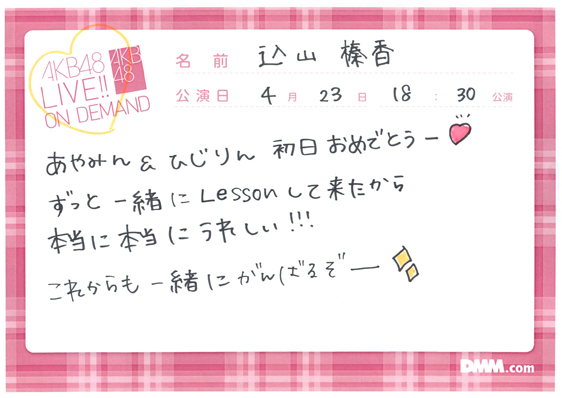 AKB48
LIVE!!
ON DEMAND
AKB
48
名前 込山榛香
公演日 4月23日 18:30公演
あやみん & ひじりん 初日おめでとうー
ずっと一緒にLessonして来たから
本当に本当にうれしい!!!
これからも一緒にがんばるぞー
DMM.com